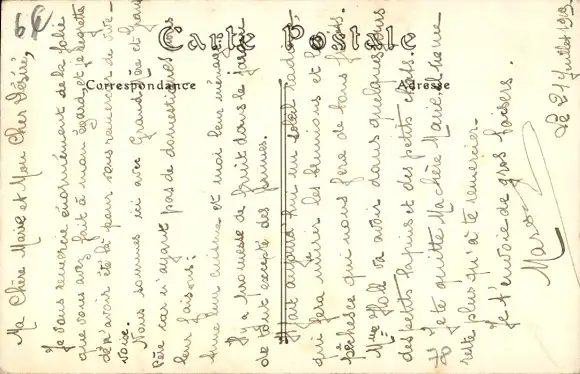 64
Carte Postale
Correspondance
Adresse
Le 21 Juillet 1919
Ma Chère Marie et Mon Cher Désiré,
Je vous remercie énormément de la folie
que vous avez fait à mon égard et je regrette
de n'avoir été là pour vous remercier de vive
voix.
Nous sommes ici avec Grand-Mère et Grand
Père car n'ayant pas de domestiques nous
leur faisons:
Anne leur cuisine et moi leur ménage
Il y a promesse de fruit dans le jardin
de tout excepté des prunes.
Il fait aujourd'hui un soleil radieux
qui fera mûrir les brunions et les
pêches ce qui nous fera de bons fruits.
Mme Holl va avoir dans quelques jours
des petits lapins et des petits chats.
Je te quitte Ma chère Marie, il ne me
reste plus qu'à te remercier.
Je t'envoie de gros baisers.